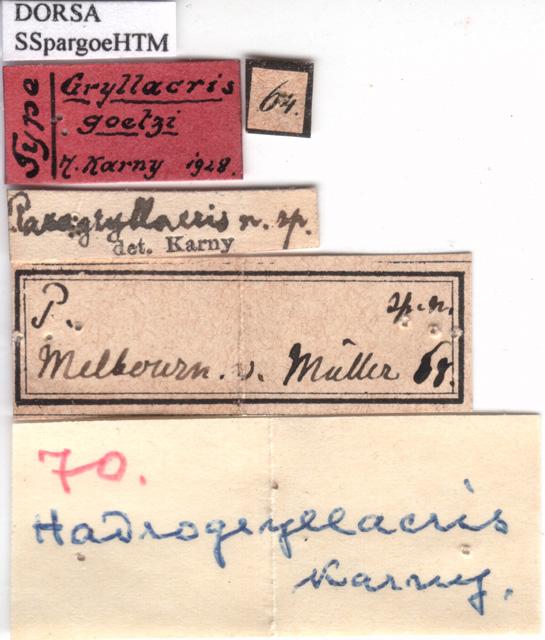 DORSA
SSpargoeHTM
Type
Gryllacris
goetzi
H. Karny 1928.
64.
Paragryllacris n. sp.
det. Karny
P. sp. n.
Melbourn. v. Müller 68.
70.
Hadrogryllacris
Karny.